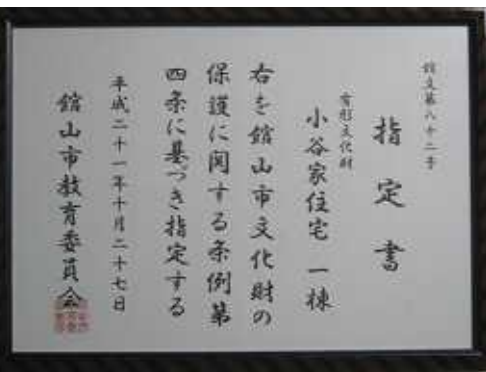 館文第八十二号
指定書
有形文化財
小谷家住宅 一棟
右を館山市文化財の
保護に関する条例第
四条に基づき指定する
平成二十一年十月二十七日
館山市教育委員会